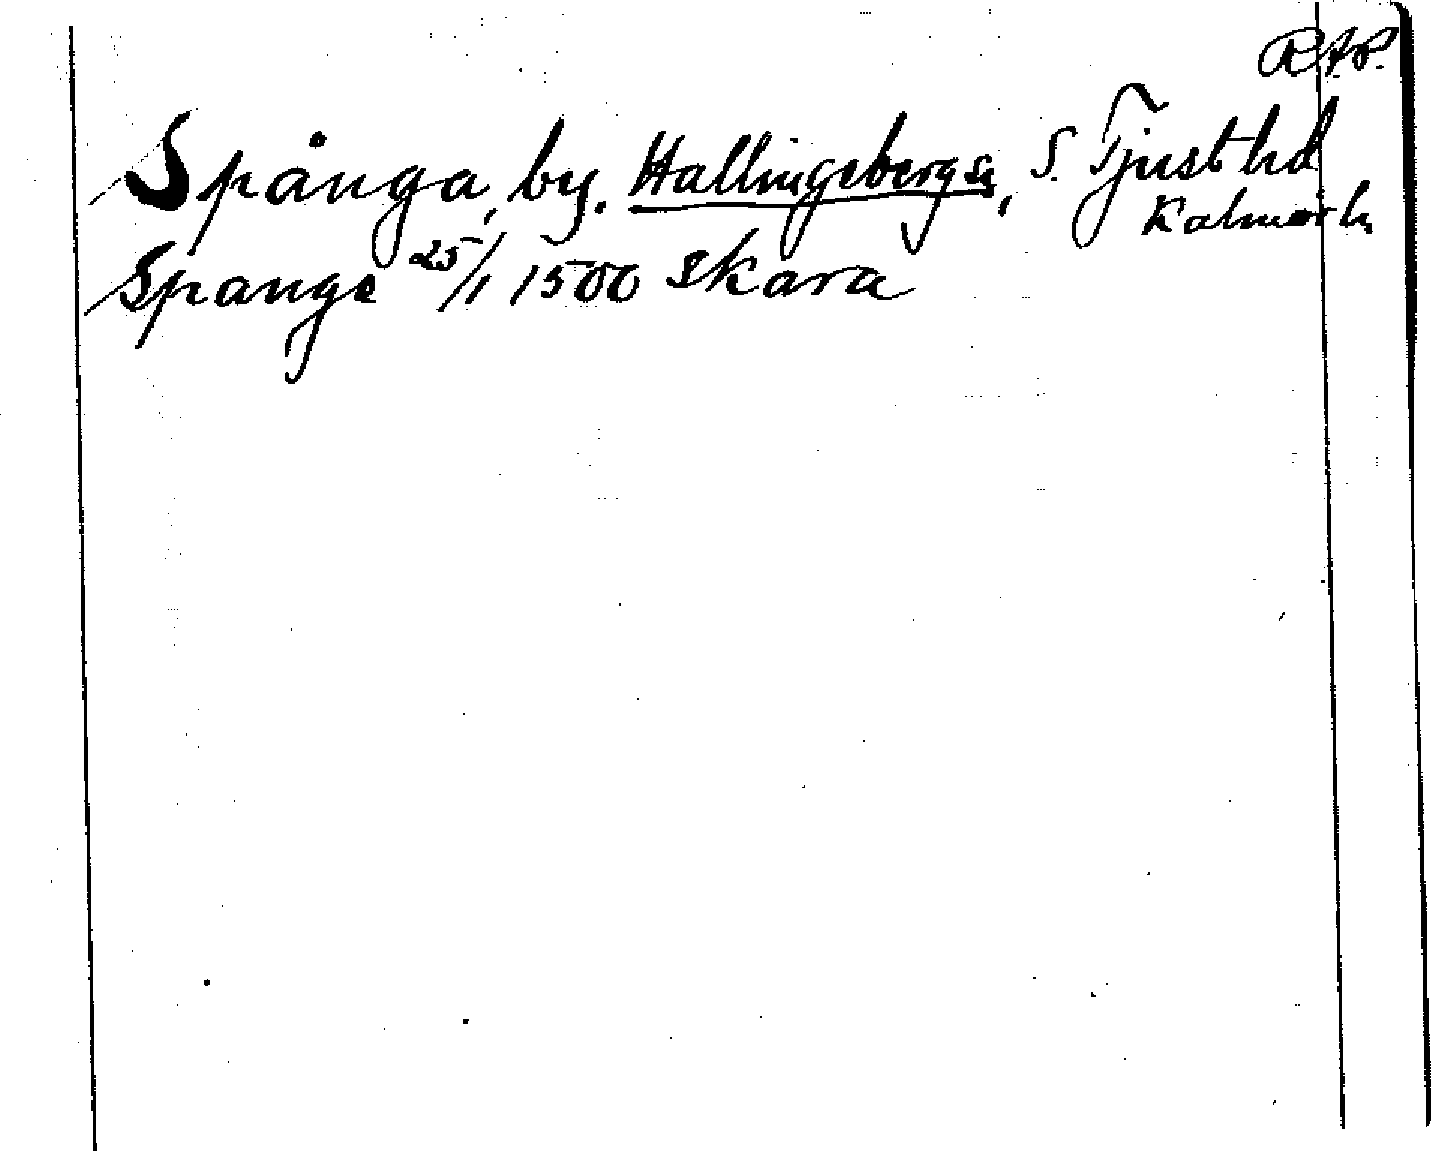 R.A.P.
Spånga, by. Hallingebergs sn, S. Tjust hd
Kalmar ln
Spange 25/1 1500 Skara